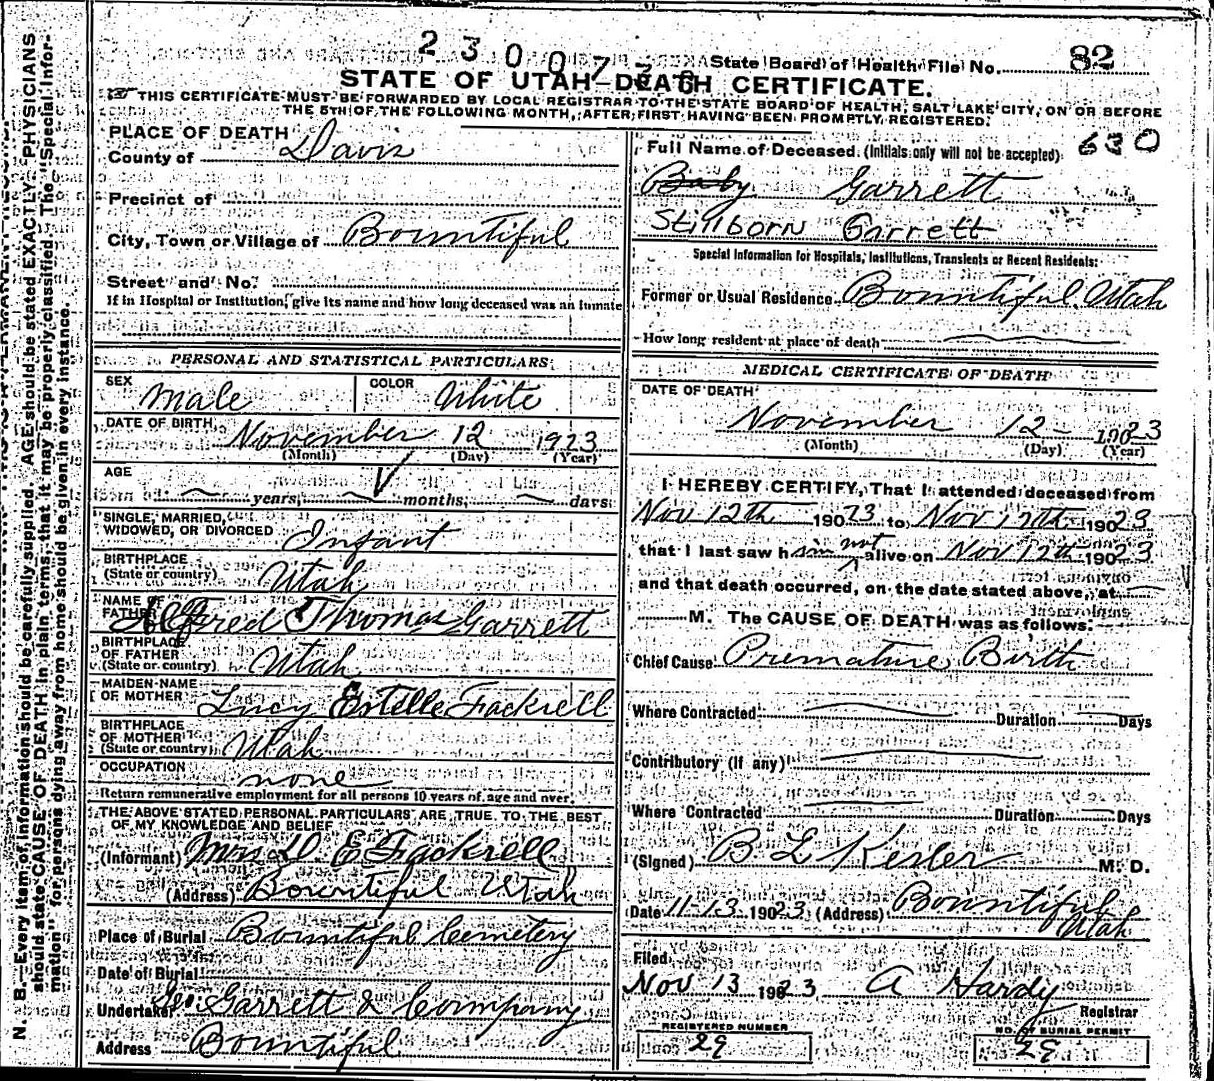 2300776
State Board of Health File No. 82
STATE OF UTAH—DEATH CERTIFICATE.
THIS CERTIFICATE MUST BE FORWARDED BY LOCAL REGISTRAR TO THE STATE BOARD OF HEALTH, SALT LAKE CITY, ON OR BEFORE
THE 5TH OF THE FOLLOWING MONTH, AFTER FIRST HAVING BEEN PROMPTLY REGISTERED.
PLACE OF DEATH
County of Davis
Precinct of
City, Town or Village of Bountiful
Street and No.
If in Hospital or Institution, give its name and how long deceased was an inmate
PERSONAL AND STATISTICAL PARTICULARS
SEX Male COLOR White
DATE OF BIRTH November 12 1923
(Month) (Day) (Year)
AGE
years, months, days
SINGLE, MARRIED,
WIDOWED, OR DIVORCED Infant
BIRTHPLACE
(State or country) Utah
NAME OF
FATHER Alfred Thomas Garrett
BIRTHPLACE
OF FATHER
(State or country) Utah
MAIDEN NAME
OF MOTHER Lucy Estelle Fackrell
BIRTHPLACE
OF MOTHER
(State or country) Utah
OCCUPATION none
Return remunerative employment for all persons 10 years of age and over.
THE ABOVE STATED PERSONAL PARTICULARS ARE TRUE TO THE BEST
OF MY KNOWLEDGE AND BELIEF
(Informant) Mrs D E Fackrell
(Address) Bountiful Utah
Place of Burial Bountiful Cemetery
Date of Burial
Undertaker Geo. Garrett & Company
Address Bountiful
630
Full Name of Deceased (Initials only will not be accepted)
Baby Garrett
Stillborn Garrett
Special Information for Hospitals, Institutions, Transients or Recent Residents:
Former or Usual Residence Bountiful Utah
How long resident at place of death
MEDICAL CERTIFICATE OF DEATH
DATE OF DEATH
November 12 - 19023
(Month) (Day) (Year)
I HEREBY CERTIFY, That I attended deceased from
Nov 12th 19023 to Nov 12th 19023
that I last saw him not alive on Nov 12th 19023
and that death occurred, on the date stated above, at
M. The CAUSE OF DEATH was as follows:
Chief Cause Premature Birth
Where Contracted Duration Days
Contributory (If any)
Where Contracted Duration Days
(Signed) B L Kesler M. D.
Date 11-13 19023 (Address) Bountiful
Utah
Filed
Nov 13 19023 A Hardy
Registrar
REGISTERED NUMBER
29
NO. OF BURIAL PERMIT
29
N. B.—Every item of information should be carefully supplied. AGE should be stated EXACTLY. PHYSICIANS
should state CAUSE OF DEATH in plain terms, that it may be properly classified. The "Special Infor-
mation" for persons dying away from home should be given in every instance.